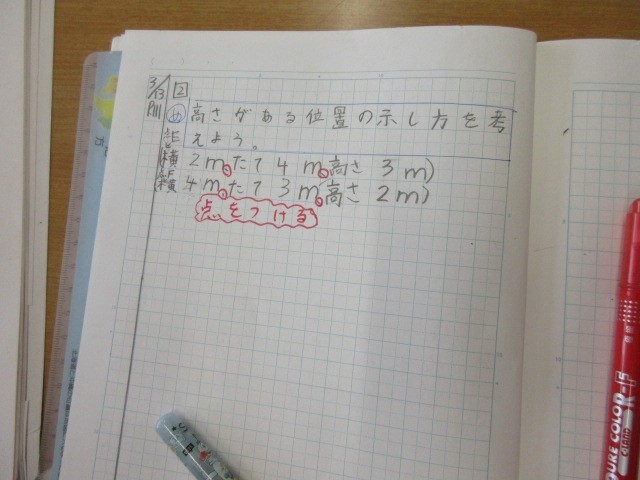 3/13 2
め 高さがある位置の示し方を考
えよう。
横 2m、たて 4 m、高さ 3 m)
横 4m、たて 3 m、高さ 2 m)
点をつける